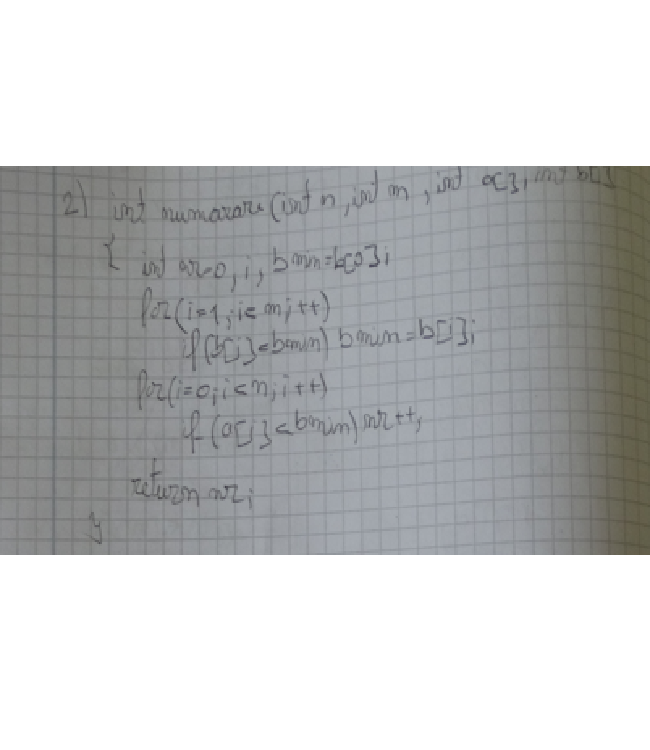 2) int numarare(int n, int m, int a[], int b[]
{ int nr=0, i, bmin=b[0];
for(i=1; i<m; i++)
if(b[i]<bmin) bmin=b[i];
for(i=0; i<n; i++)
if(a[i]<bmin) nr++;
return nr;
}